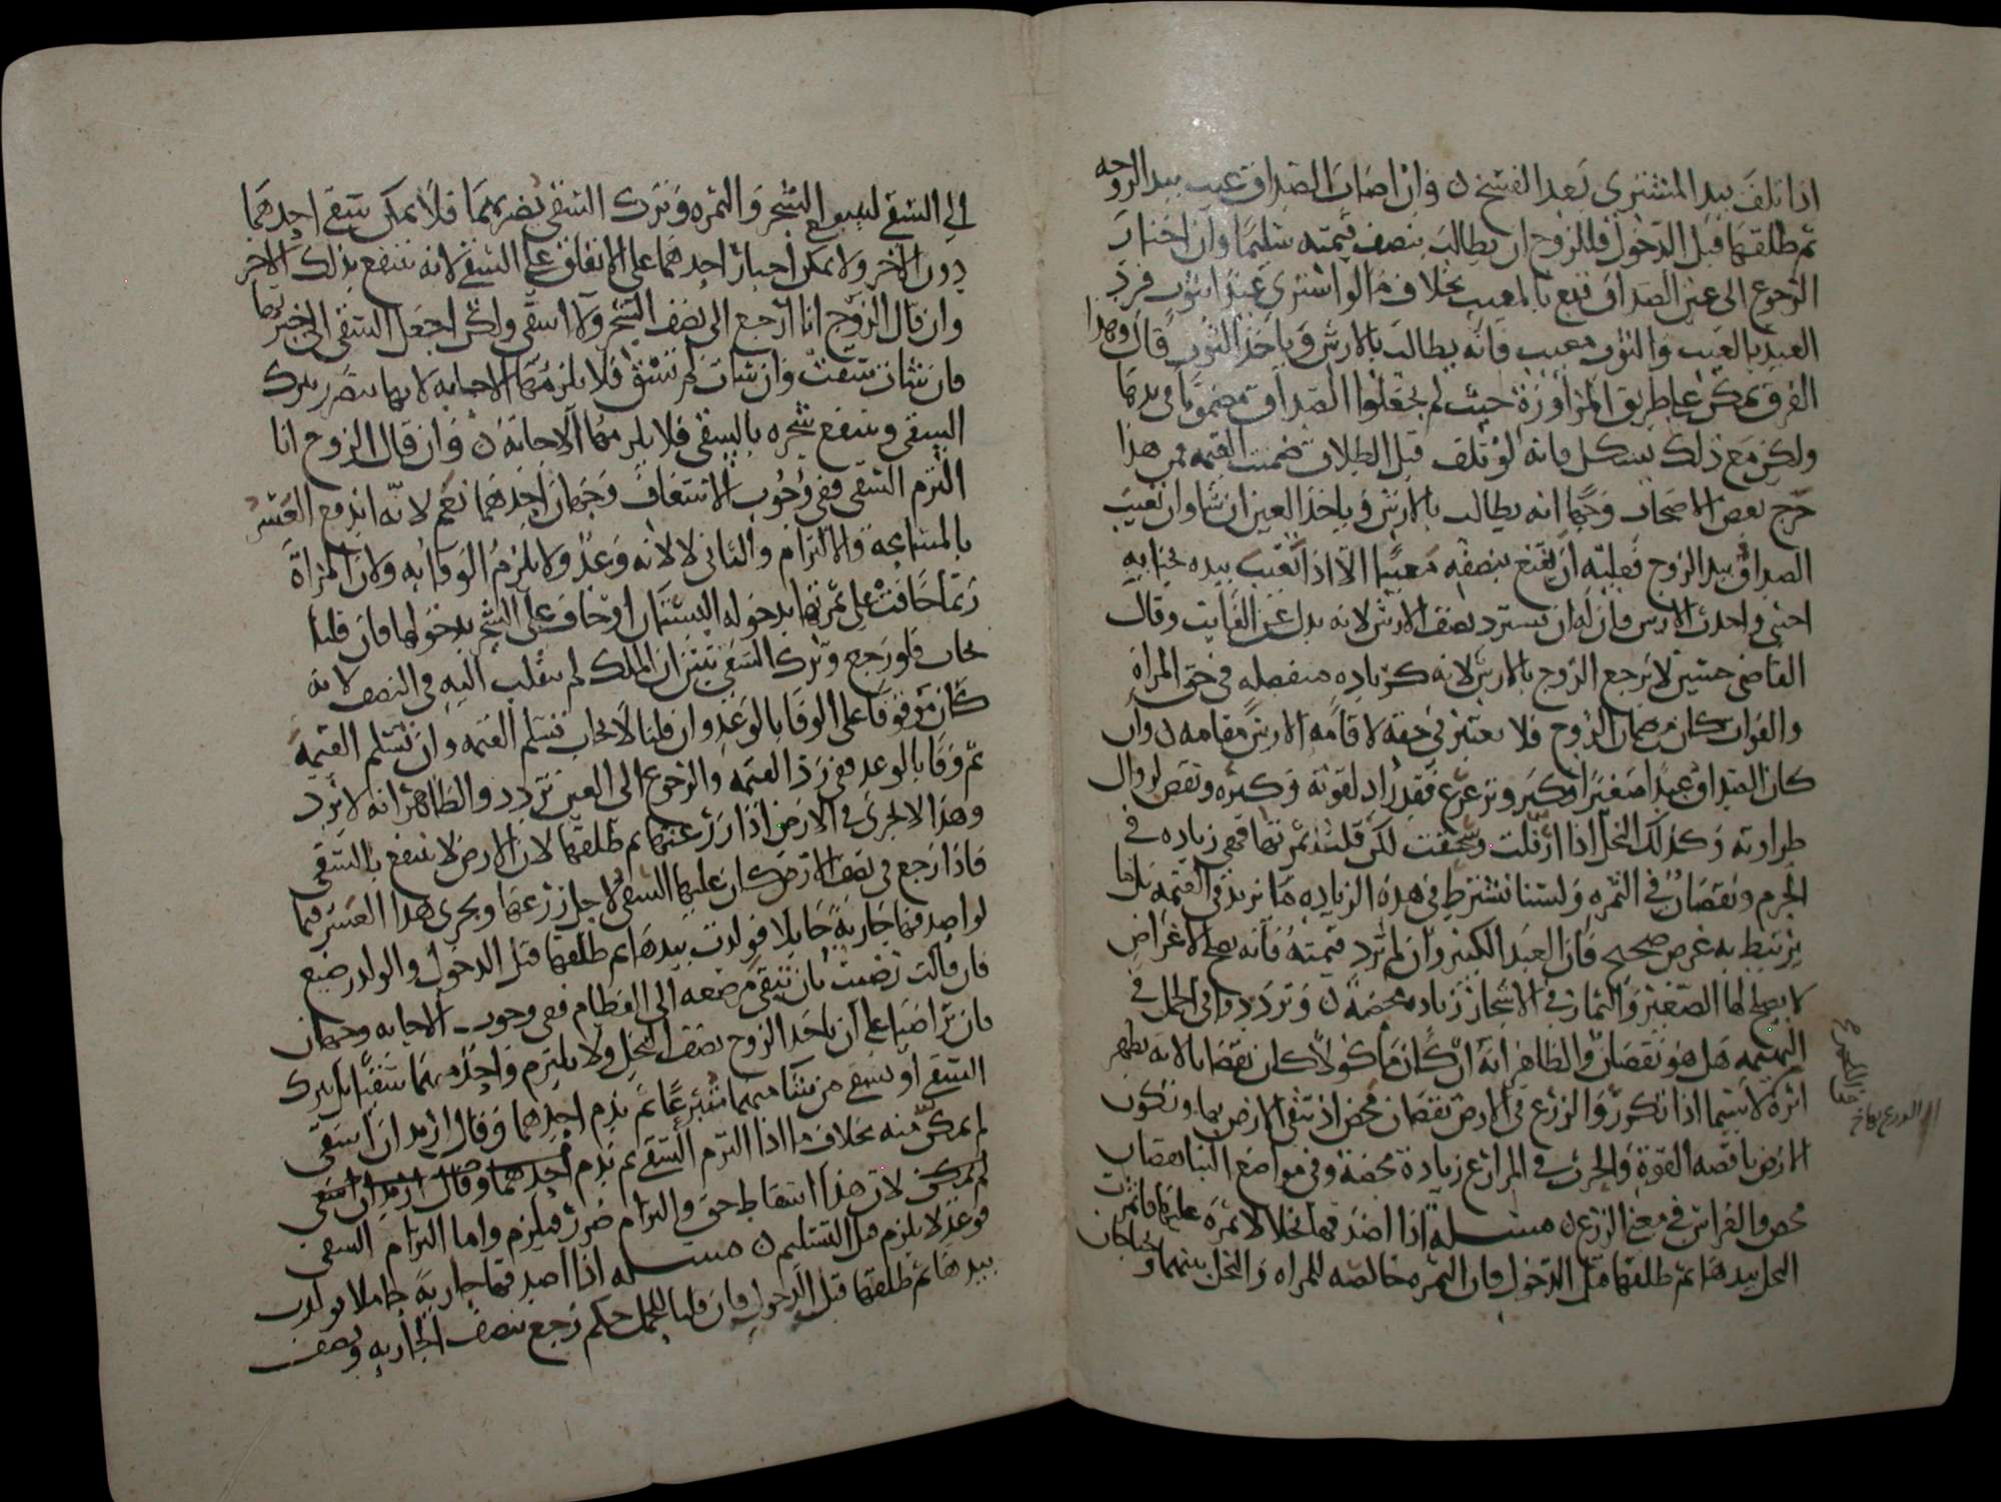 اذا تلف بيد المشتري بعد الفسخ ن وان اصاب الصداق عيب بيد الزوجه
ثم طلقها قبل الدخول فللزوج ان يطالب بنصف قيمته سليما وان اختار
الرجوع الى عين الصداق قنع بالمعيب بخلاف ما لو اشترى عبدا بثوب فرد
العبد بالعيب والثوب معيب فانه يطالب بالارش وياخذ الثوب قال وهذا
الفرق يمكن على طريق المراوزة حيث لم يجعلوا الصداق مضمونا في يدها
ولكن مع ذلك يشكل فانه لو تلف قبل الطلاق ضمنت القيمه فمن هذا
خرج بعض الاصحاب وجها انه يطالب بالارش وياخذ العين ان شا وان تعيب
الصداق بيد الزوج فعليه ان يقنع بنصفه معيبا الا اذا تعيب بيده بجنايه
اجنبي واخذت الارش فان له ان يسترد نصف الارش لانه بدل عن الفايت وقال
القاضي حسين لا يرجع الزوج بالارش لانه كزياده منفصله في حق المراة
والفوات كان من ضمان الزوج فلا يعتبر في حقه لاقامه الارش مقامه ن وان
كان الصداق عبدا صغيرا فكبر وترعرع فقد زاد لقوته وكبره ونقص لزوال
طراوته وكذلك النخل اذا ارقلت وسحقت لكن قلت ثمرتها فهي زياده في
الجرم ونقصان في الثمره ولسنا نشترط في هذه الزياده ما يزيد في القيمه بل ما
يرتبط به غرض صحيح فان العبد الكبير وان لم تزد قيمته فانه يصلح لاغراض
لا يصلح لها الصغير والثمار في الاشجار زياده محضه ن وتردد وا في الحمل في
البهيمه هل هو نقصان والظاهر انه ان كان ماكولا كان نقصانا لانه يظهر
اثره لا سيما اذا تكرر والزرع في الارض نقصان محض اذ تبقى الارض بها وتكون
الارض ناقصه القوة والحرث في المزارع زيادة محضة وفي مواضع البنا نقصان
محض والغراس في معنى الزرع ن مسله اذا اصدقها نخلا لا ثمرة عليها فاثمرت
النخل بيدها ثم طلقها قبل الدخول فان الثمره خالصه للمراه والنخل بينهما ويحتاجان
الى السقي لينتفع الشجر والثمره وترك السقي يضر بهما فلا يمكن سقي احدهما
دون الاخر ولا يمكن اجبار احدهما على الانفاق على السقي لانه ينتفع بذلك الاخر
وان قال الزوج انا ارجع الى نصف الشجر ولا اسقي ولكن اجعل السقي الى خيرتها
فان شات سقت وان شات لم تسق فلا يلزمها الاجابه لانها تتضرر بترك
السقي وينتفع شجره بالسقي فلا يلزمها الاجابة ن وان قال الزوج انا
التزم السقي ففي وجوب الاسعاف وجهان احدهما نعم لانه اندفع العسر
بالمسامحه والالتزام والثاني لا لانه وعد ولا يلزم الوفا به ولان المراة
ربما خافت على ثمرتها بدخوله البستان او خاف على الشجر بدخولها فان قلنا
يجاب فلو رجع وترك السقي تبين ان الملك لم ينقلب اليه في النصف لانه
كان موقوفا على الوفا بالوعد وان قلنا لا يجاب تسلم القيمه وان تسلم القيمه
ثم وفا بالوعد ففي رد القيمه والرجوع الى العين تردد والظاهر انه لا يرد
وهذا لا يجري في الارض اذا زرعتها ثم طلقها لان الارض لا تنتفع بالسقي
فاذا رجع في نصف الارض كان عليها السقي لاجل زرعها ويجري هذا العسر فيما
لو اصدقها جارية حايلا فولدت بيدها ثم طلقها قبل الدخول والولد رضيع
فان قالت رضيت بان تبقى مرضعه الى الفطام ففي وجوب الاجابه وجهان
فان تراضيا على ان ياخذ الزوج نصف النخل ولا يلتزم واحد منهما سقيا بل يترك
السقي او يسقي من شا منهما متبرعا ثم ندم احدهما وقال اريد ان اسقي
لم يمكن منه بخلاف ما اذا التزم السقي ثم ندم احدهما وقال اريد ان اسقي
لم يمكن لان هذا اسقاط حق والتزام ضرر فيلزم واما التزام السقي
فوعد لا يلزم قبل التسليم ن مسله اذا اصدقها جارية حاملا فولدت
بيدها ثم طلقها قبل الدخول فان قلنا للحمل حكم رجع بنصف الجاريه ونصف